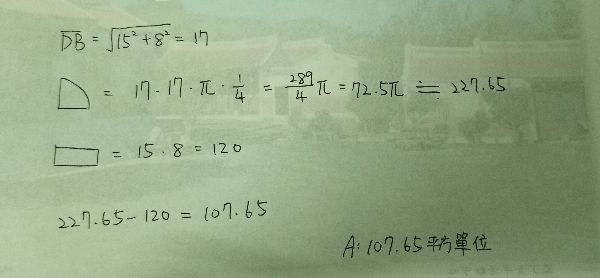 DB = √(15²+8²) = 17
= 17·17·π·1/4 = 289/4 π = 72.5π ≒ 227.65
= 15·8 = 120
227.65-120 = 107.65
A:107.65平方單位